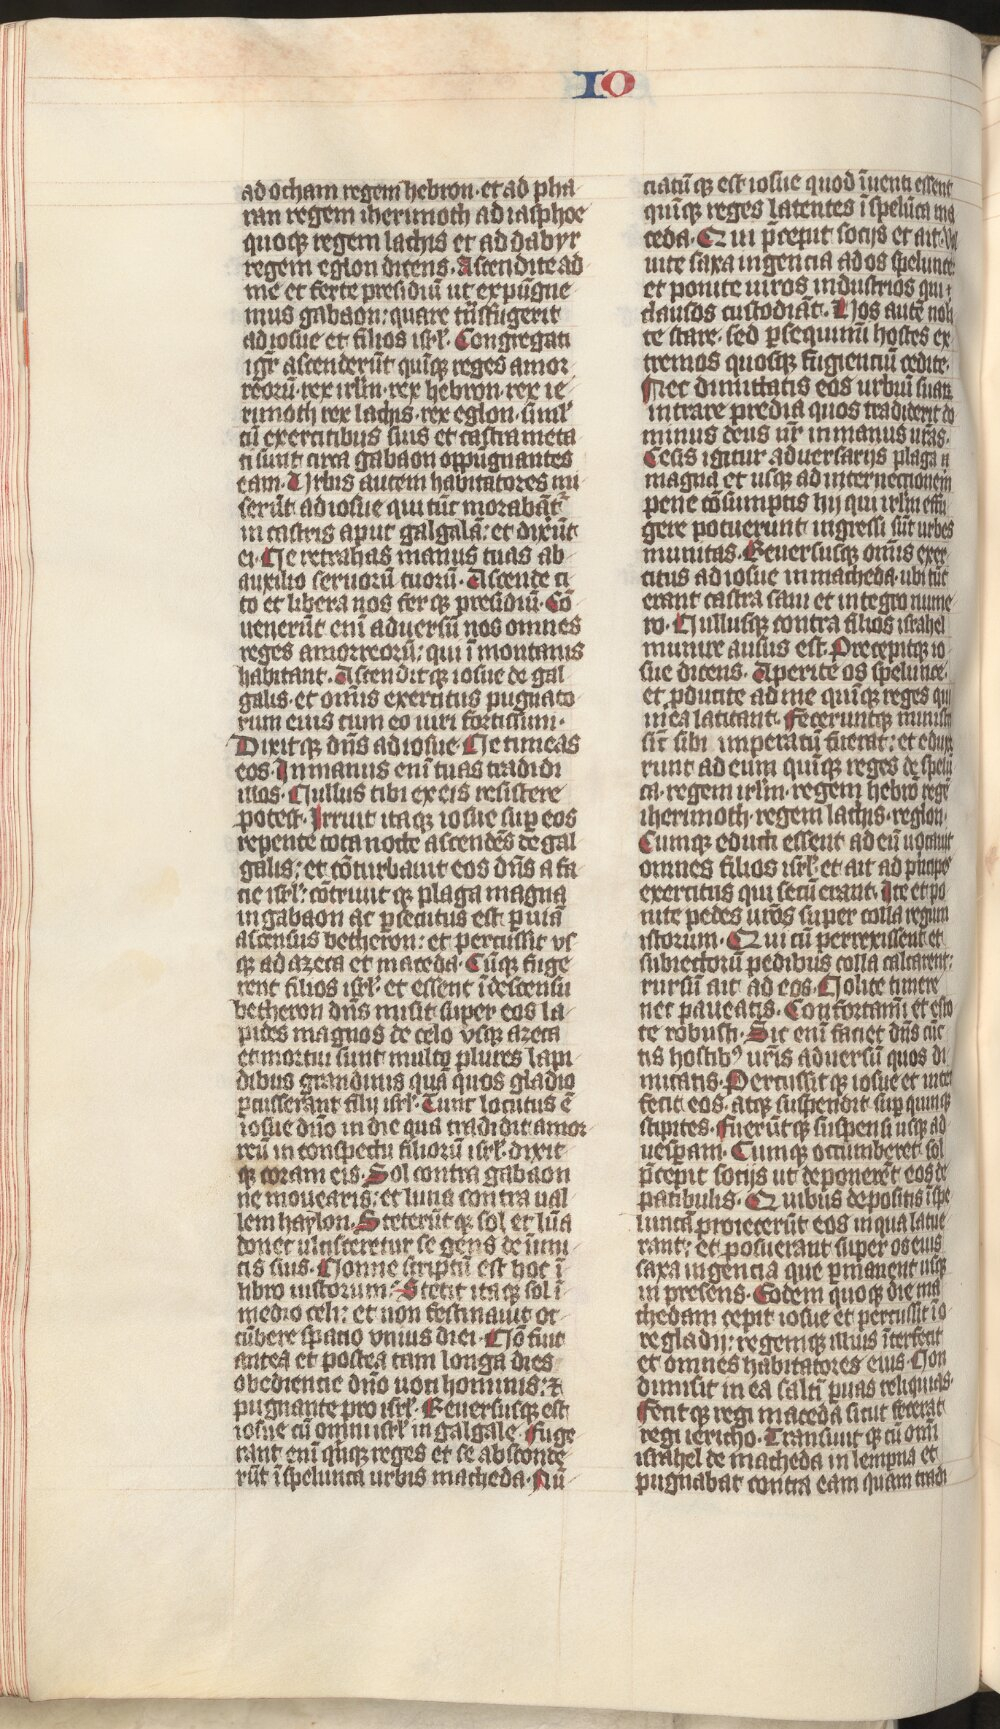 IO
ad ocham regem hebron· et ad pha
ran regem iherimoth ad iasphoe
quoqȝ regem lachis et ad dabyr
regem eglon dicens. Ascendite ad
me et ferte presidiū ut expūgne
mus gabaon: quare trāsfugerit
ad iosue et filios isrl̄. Congregati
igr̄ ascenderūt quīqȝ reges amor
reorū· rex irl̄m· rex hebron· rex ie
rimoth rex lachis· rex eglon· siml̄
cū exercitibus suis et castra meta
ti sunt circa gabaon oppugnantes
eam· Urbis autem habitatores mi
serūt ad iosue qui tūc morabāt̄
in castris aput galgalā: et dixerūt
ei· Ne retrahas manus tuas ab
auxilio seruorū tuorū· Ascende ci
to et libera nos fer qȝ presidiū· Cō
uenerūt enī aduersū nos omnes
reges amorreorū: qui ī montanis
habitant· Ascendit qȝ iosue de gal
galis· et om̄is exercitus pugnato
rum eius cum eo uiri fortissimi·
Dixit qȝ dn̄s ad iosue· Ne timeas
eos· In manus enī tuas tradidi
illos· Nullus tibi ex eis resistere
potest· Irruit itaqȝ iosue sup eos
repente tota nocte ascendēs de gal
galis: et cōturbauit eos dn̄s a fa
cie isrl̄: cōtriuit qȝ plaga magna
in gabaon ac p̄secutus est p uiā
ascensus betheron: et percussit vs
qȝ ad azeca et maceda· Cūqȝ fuge
rent filios isrl̄· et essent ī descensu
betheron dn̄s misit super eos la
pides magnos de celo vsqȝ azeca
et mortui sunt multo plures lapi
dibus grandinis quā quos gladio
pcusserant filij isrl̄· Tunc locutus ē
iosue dn̄o in die qua tradidit amor
reū in conspectu filiorū isrl̄· dixit
qȝ coram eis· Sol contra gabaon
ne mouearis: et luna contra ual
lem haylon· Steterūt qȝ sol et lūa
donec ulcisceretur se gens de īimi
cis suis· Nonne scriptū est hoc ī
libro iustorum: Stetit itaqȝ sol ī
medio celi: et non festinauit oc
cūbere spatio vnius diei· Nō fuit
antea et postea tam longa dies
obediente dn̄o uoci hominis: ⁊
pugnante pro isrl̄· Reuersusqȝ est
iosue cū omni isrl̄ in galgale· Fuge
rant enī qīqȝ reges et se absconde
rūt ī spelunca urbis macheda· Nū
ciatū qȝ est iosue quod īuenti essent
quīqȝ reges latentes ī spelūca ma
ceda· Qui p̄cepit socijs et ait· Vol
uite saxa ingencia ad os spelunce:
et ponite uiros industrios qui
clausos custodiāt· Uos autē noli
te stare· sed p̄sequimī hostes ex
tremos quosqȝ fugienciū cedite·
Nec dimittatis eos urbiū suarꝝ
intrare predia quos tradiderit do
minus deus ur̄ in manus ur̄as·
Cesis igitur aduersarijs plaga
magna et usqȝ ad internecionem
pene cōsumptis hij qui irl̄m effu
gere potuerunt ingressi sūt urbes
munitas· Reuersusqȝ om̄is exer
citus ad iosue in macheda· ubi tūc
erant castra sani et integro nume
ro· Nullusqȝ contra filios israhel
mutire ausus est· Precepitqȝ io
sue dicens· Aperite os spelunce·
et pducite ad me quīqȝ reges qui
in ea latitant· Feceruntqȝ ministri
sic̄ sibi imperatū fuerat: et eduxe
runt ad eum quīqȝ reges de spelū
ca· regem irl̄m· regem hebrō regē
iherimoth· regem lachis· reglon·
Cumqȝ educti essent ad eū uocauit
omnes filios isrl̄· et ait ad p̄ncipes
exercitus qui secū erant· Ite et po
nite pedes ur̄os super colla regum
istorum· Qui cū perrexissent et
subiectorū pedibus colla calcarent:
rursū ait ad eos· Nolite timere
nec paueatis· Confortamī et esto
te robusti· Sic enī faciet dn̄s cūc
tis hostibꝰ ur̄is aduersū quos di
micatis· Percussit qȝ iosue et inter
fecit eos· atqȝ suspendit sup quinqȝ
stipites· fuerūtqȝ suspensi usqȝ ad
uesp̄am· Cumqȝ occumberet sol
p̄cepit socijs ut deponerēt eos de
patibulis· Quibus depositis ī spe
luncā proiecerūt eos in qua latue
rant: et posuerant super os eius
saxa ingencia que pmanent usqȝ
in presens· Eodem quoqȝ die ma
chedam cepit iosue et percussit īo
re gladij: regemqȝ illius īterfecit
et omnes habitatores eius· Non
dimisit in ea saltī puas reliquias·
Fecit qȝ regi maceda sicut fecerat
regi iericho· Transiuit qȝ cū om̄i
israhel de macheda in lempna et
pugnabat contra eam quam tradi